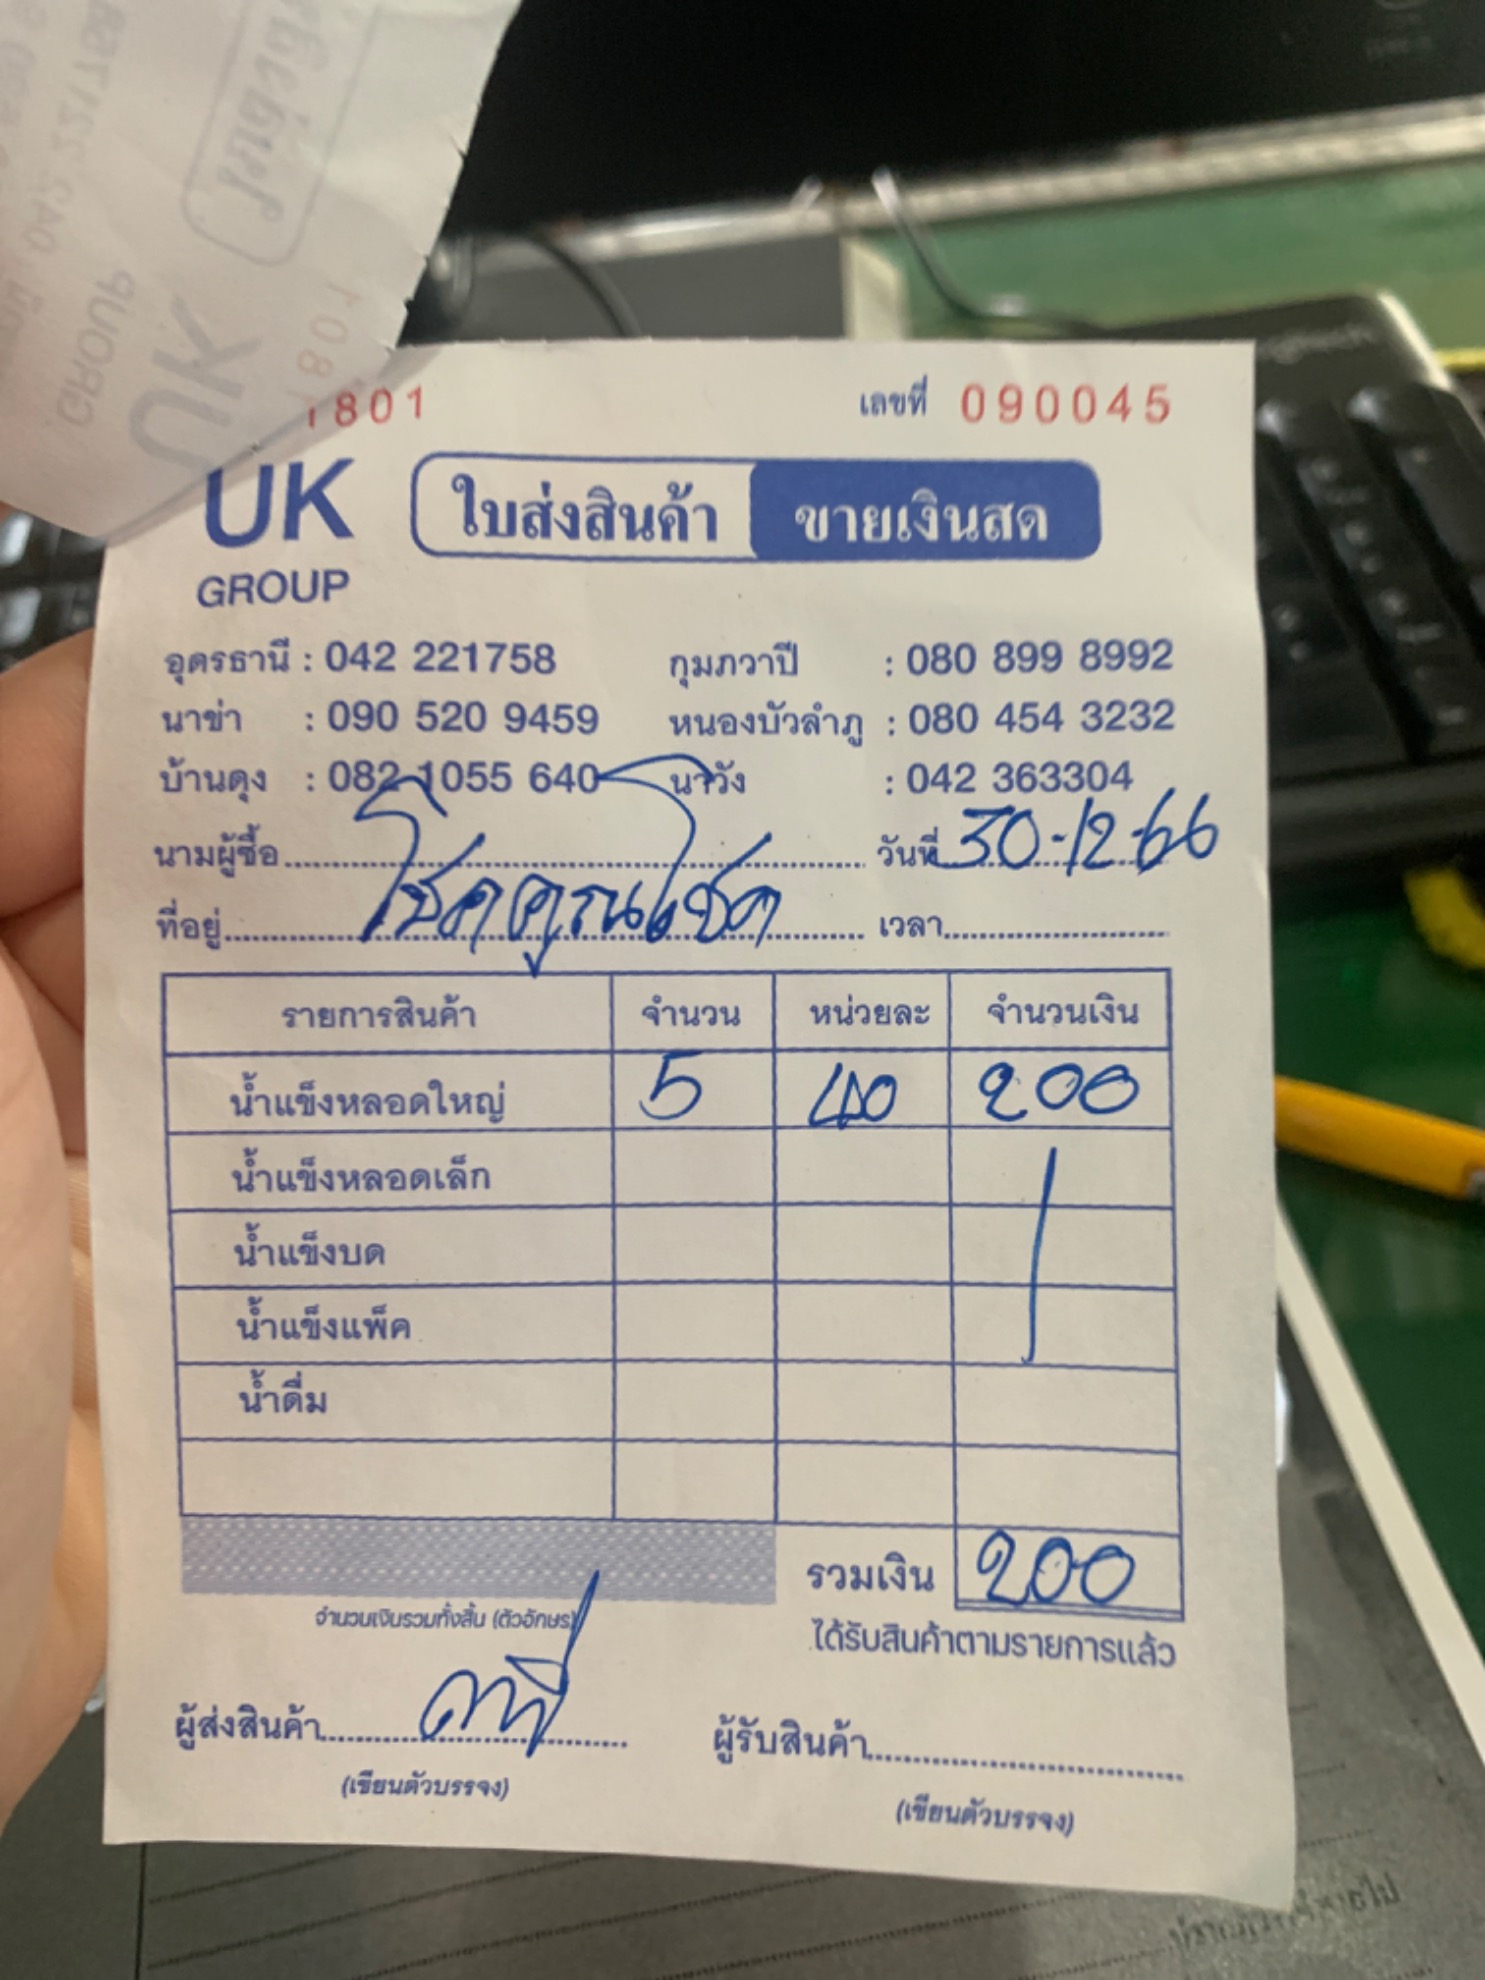 1801 เลขที่ 090045
UK ใบส่งสินค้า ขายเงินสด
GROUP
อุดรธานี : 042 221758 กุมภวาปี : 080 899 8992
นาข่า : 090 520 9459 หนองบัวลำภู : 080 454 3232
บ้านดุง : 082 1055 640 นาวัง : 042 363304
นามผู้ซื้อ วันที่ 30-12-66
ที่อยู่ โชคคูณโชค เวลา
รายการสินค้า จำนวน หน่วยละ จำนวนเงิน
น้ำแข็งหลอดใหญ่ 5 40 200
น้ำแข็งหลอดเล็ก
น้ำแข็งบด
น้ำแข็งแพ็ค
น้ำดื่ม
รวมเงิน 200
จำนวนเงินรวมทั้งสิ้น (ตัวอักษร)
ได้รับสินค้าตามรายการแล้ว
ผู้ส่งสินค้า ผู้รับสินค้า
(เขียนตัวบรรจง) (เขียนตัวบรรจง)